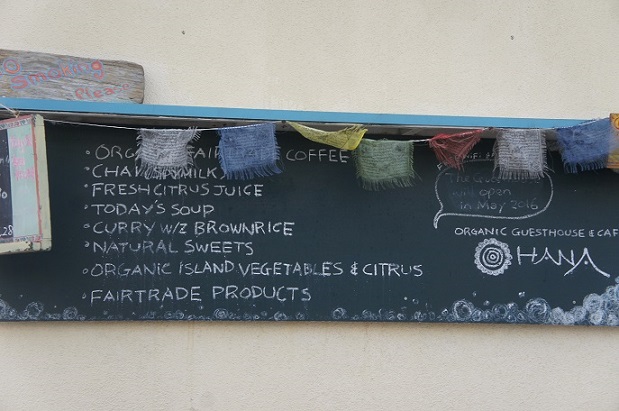 Smoking
Please
COFFEE
FRESH CITRUS JUICE
TODAY'S SOUP
CURRY W/Z BROWNRICE
NATURAL SWEETS
ORGANIC ISLAND VEGETABLES & CITRUS
FAIRTRADE PRODUCTS
will open
in May 2016
ORGANIC GUESTHOUSE & CAF
OHANA